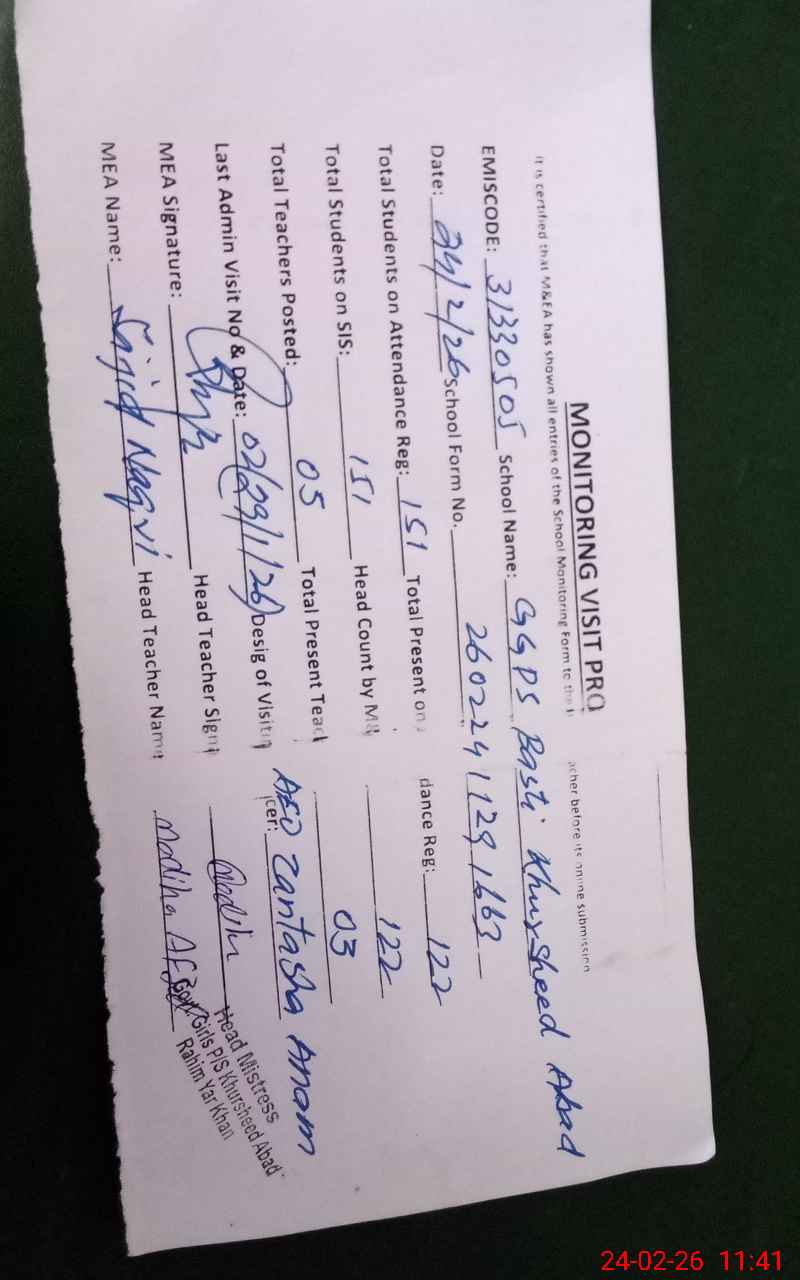 MONITORING VISIT PRO
It is certified that M&EA has shown all entries of the School Monitoring Form to the acher before its online submission
EMISCODE: 31330505 School Name: GGPS Basti Khursheed Abad
Date: 24/2/26 School Form No. 26022411291663
Total Students on Attendance Reg: 151 Total Present on dance Reg: 122
Total Students on SIS: 151 Head Count by M 122
Total Teachers Posted: 05 Total Present Teac 03
Last Admin Visit No & Date: 02(29/1/26) Desig of Visitin cer: AEO Zantasha Anam
MEA Signature: Head Teacher Sign
MEA Name: Sajid Naqvi Head Teacher Name Madiha
Head Mistress
Govt. Girls P/S Khursheed Abad
Rahim Yar Khan
24-02-26 11:41